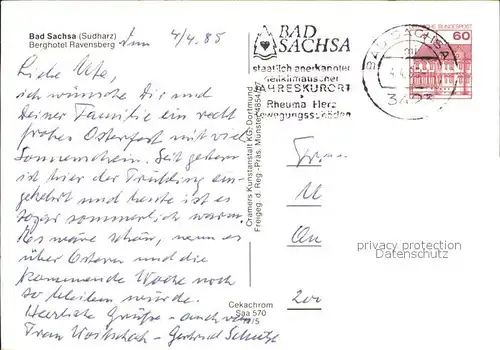 Bad Sachsa (Südharz)
Berghotel Ravensberg
4/4.85
Liebe Ute,
ich wünsche Dir und
Deiner Familie ein recht
frohes Osterfest mit viel
Sonnenschein. Seit gestern
ist hier der Frühling ein-
gekehrt und heute ist es
sogar sommerlich warm.
Es wäre schön, wenn es
über Ostern und die
kommende Woche noch
so bleiben würde.
Herzliche Grüße - auch von
Frau
Cramers Kunstanstalt KG, Dortmund
Freigeg. d. Reg.-Präs. Münster
Cekachrom
Saa 570
BAD
SACHSA
staatlich anerkannter
heilklimatischer
JAHRESKURORT
Rheuma Herz
Bewegungsschäden
BAD SACHSA
DEUTSCHE BUNDESPOST
60
privacy protection
watermark